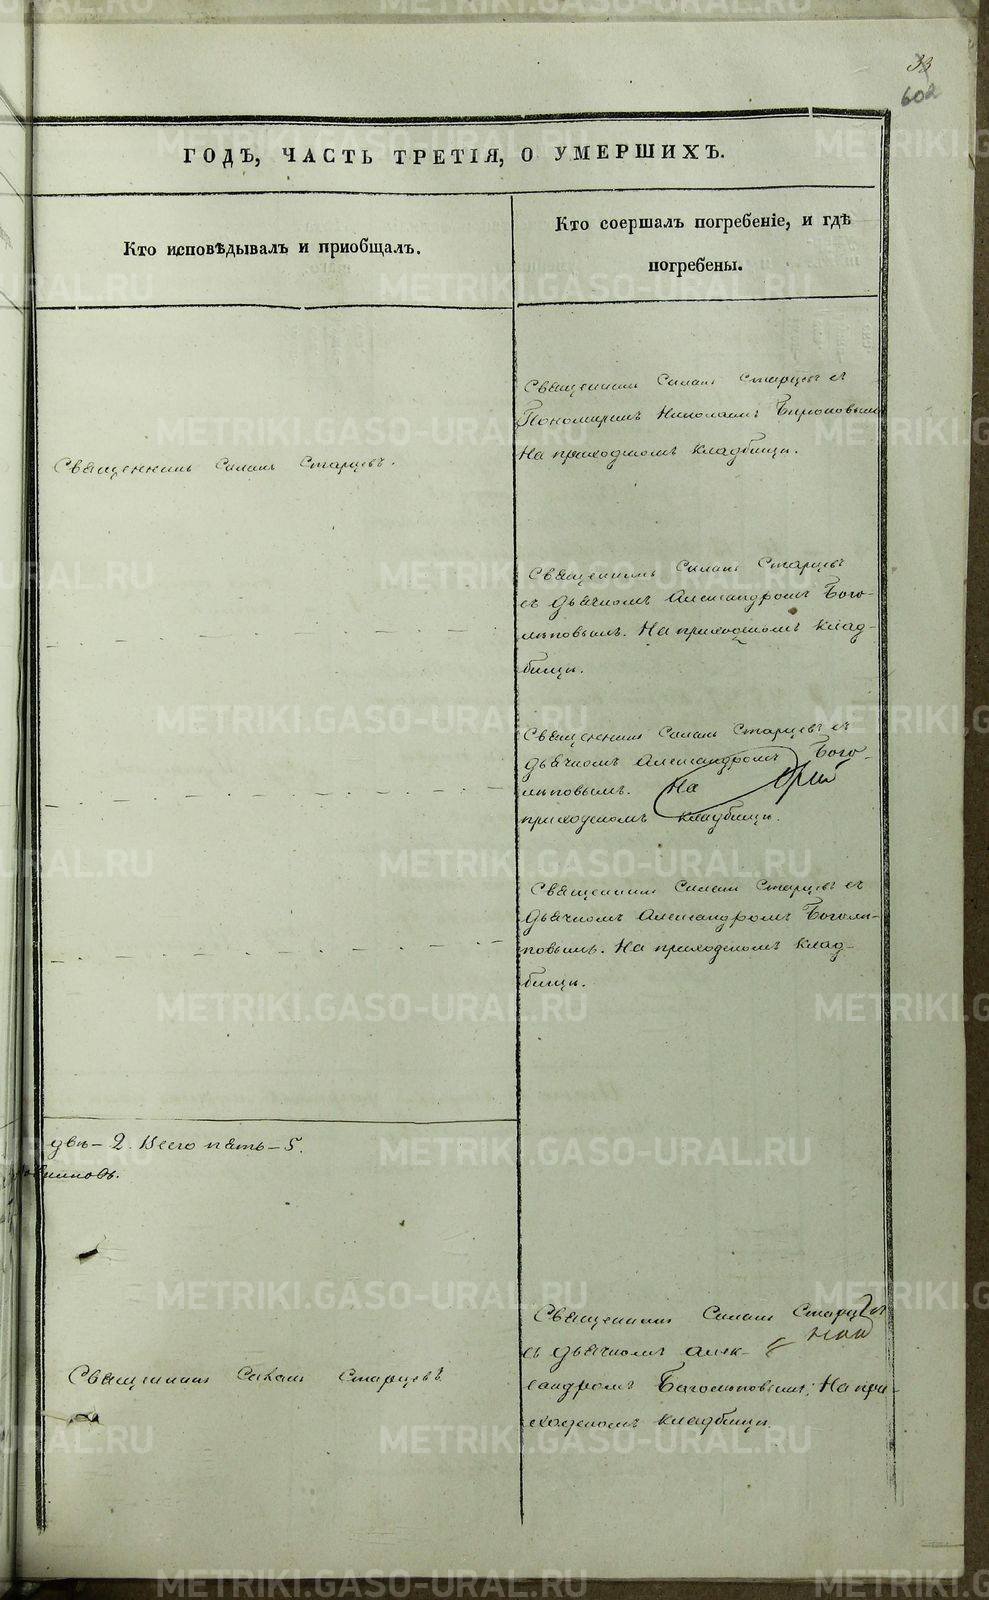 33
602
ГОДЪ, ЧАСТЬ ТРЕТІЯ, О УМЕРШИХЪ.
Кто исповѣдывалъ и приобщалъ.
Кто соершалъ погребеніе, и гдѣ
погребены.
Священникъ Старцевъ.
Священникъ Старцевъ съ
Пономаремъ Николаемъ
На приходскомъ кладбищѣ.
Священникъ Старцевъ
съ дьячкомъ Александромъ Бого-
лѣповымъ. На приходскомъ клад-
бищѣ.
Священникъ Старцевъ съ
дьячкомъ Александромъ Бого-
лѣповымъ. На
приходскомъ кладбищѣ.
Священникъ Старцевъ съ
дьячкомъ Александромъ Боголѣ-
повымъ. На приходскомъ клад-
бищѣ.
двѣ - 2. Всего пять - 5.
Священникъ Старцевъ
Священникъ Старцевъ
съ дьячкомъ Алек-
сандромъ Боголѣповымъ. На при-
ходскомъ кладбищѣ.
METRIKI.GASO-URAL.RU